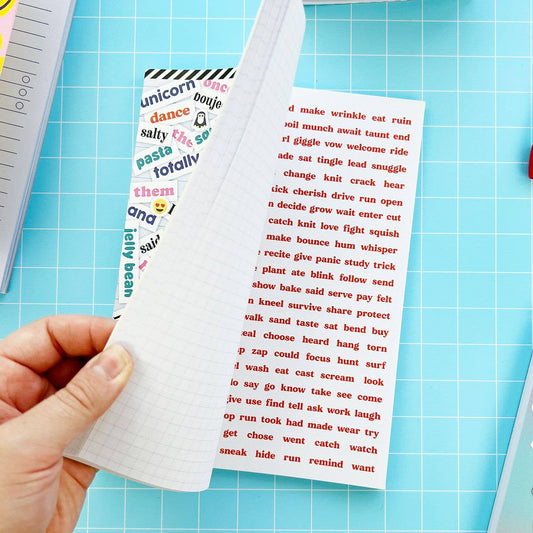 unicorn once
dance Bouje
salty the
pasta
totally
them
said
jelly bean
make wrinkle eat ruin
munch await taunt end
giggle vow welcome ride
sat tingle lead snuggle
change knit crack hear
cherish drive run open
decide grow wait enter cut
catch knit love fight squish
make bounce hum whisper
recite give panic study trick
plant ate blink follow send
show bake said serve pay felt
kneel survive share protect
walk sand taste sat bend buy
choose heard hang torn
zap could focus hunt surf
wash eat cast scream look
say go know take see come
give use find tell ask work laugh
run took had made wear try
get chose went catch watch
sneak hide run remind want